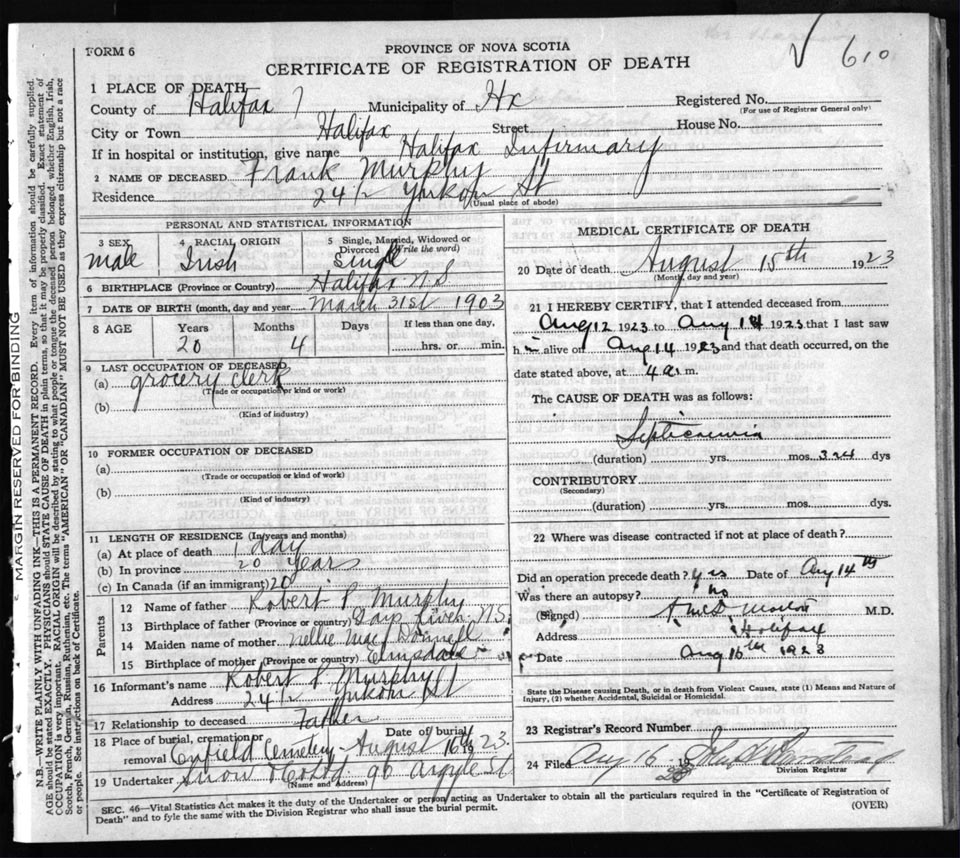 FORM 6
610
PROVINCE OF NOVA SCOTIA
CERTIFICATE OF REGISTRATION OF DEATH
1 PLACE OF DEATH
County of Halifax Municipality of Hx Registered No.
(For use of Registrar General only)
City or Town Halifax Street House No.
If in hospital or institution, give name Halifax Infirmary
2 NAME OF DECEASED Frank Murphy
Residence 24½ Yukon St
(Usual place of abode)
PERSONAL AND STATISTICAL INFORMATION
3 SEX 4 RACIAL ORIGIN 5 Single, Married, Widowed or Divorced (Write the word)
male Irish Single
6 BIRTHPLACE (Province or Country) Halifax N.S
7 DATE OF BIRTH (month, day and year) March 31st 1903
8 AGE Years Months Days If less than one day,
20 4 hrs. or min.
9 LAST OCCUPATION OF DECEASED
(a) grocery clerk
(Trade or occupation or kind or work)
(b)
(Kind of industry)
10 FORMER OCCUPATION OF DECEASED
(a)
(Trade or occupation or kind of work)
(b)
(Kind of industry)
11 LENGTH OF RESIDENCE (In years and months)
(a) At place of death 1 day
(b) In province 20 years
(c) In Canada (if an immigrant) 20
Parents
12 Name of father Robert P Murphy
13 Birthplace of father (Province or country) N.S.
14 Maiden name of mother Nellie MacDonnell
15 Birthplace of mother (Province or country) Elmsdale
16 Informant's name Robert P Murphy
Address 24½ Yukon St
17 Relationship to deceased Father
18 Place of burial, cremation or removal Date of burial
Enfield Cemetery - August 16th 1923.
19 Undertaker Snow & Co Ltd 90 Argyle St
(Name and Address)
MEDICAL CERTIFICATE OF DEATH
20 Date of death August 15th 1923
(Month, day and year)
21 I HEREBY CERTIFY, that I attended deceased from
Aug 12 1923 to Aug 14 1923 that I last saw
h im alive on Aug 14 1923 and that death occurred, on the
date stated above, at 4 a. m.
The CAUSE OF DEATH was as follows:
Septicemia
(duration) yrs. mos. dys
CONTRIBUTORY
(Secondary)
(duration) yrs. mos. dys.
22 Where was disease contracted if not at place of death?
Did an operation precede death? Yes Date of Aug 14th
Was there an autopsy? no
(Signed) M.D.
Address Halifax
Date Aug 16th 1923
State the Disease causing Death, or in death from Violent Causes, state (1) Means and Nature of
Injury, (2) whether Accidental, Suicidal or Homicidal.
23 Registrar's Record Number
24 Filed Aug 16 19 23
Division Registrar
SEC. 46—Vital Statistics Act makes it the duty of the Undertaker or person acting as Undertaker to obtain all the particulars required in the "Certificate of Registration of
Death" and to fyle the same with the Division Registrar who shall issue the burial permit.
(OVER)
MARGIN RESERVED FOR BINDING
N.B.—WRITE PLAINLY WITH UNFADING INK—THIS IS A PERMANENT RECORD. Every item of information should be carefully supplied.
AGE should be stated EXACTLY. PHYSICIANS should STATE CAUSE OF DEATH in plain terms, so that it may be properly classified. Exact statement of
OCCUPATION is very important. RACIAL ORIGIN will be described by stating to what people or tongue the deceased person belonged whether English, Irish,
Scotch, French, German, Russian, Ruthenian, etc. The terms "AMERICAN" OR "CANADIAN" MUST NOT BE USED as they express citizenship but not a race
or people. See instructions on back of Certificate.